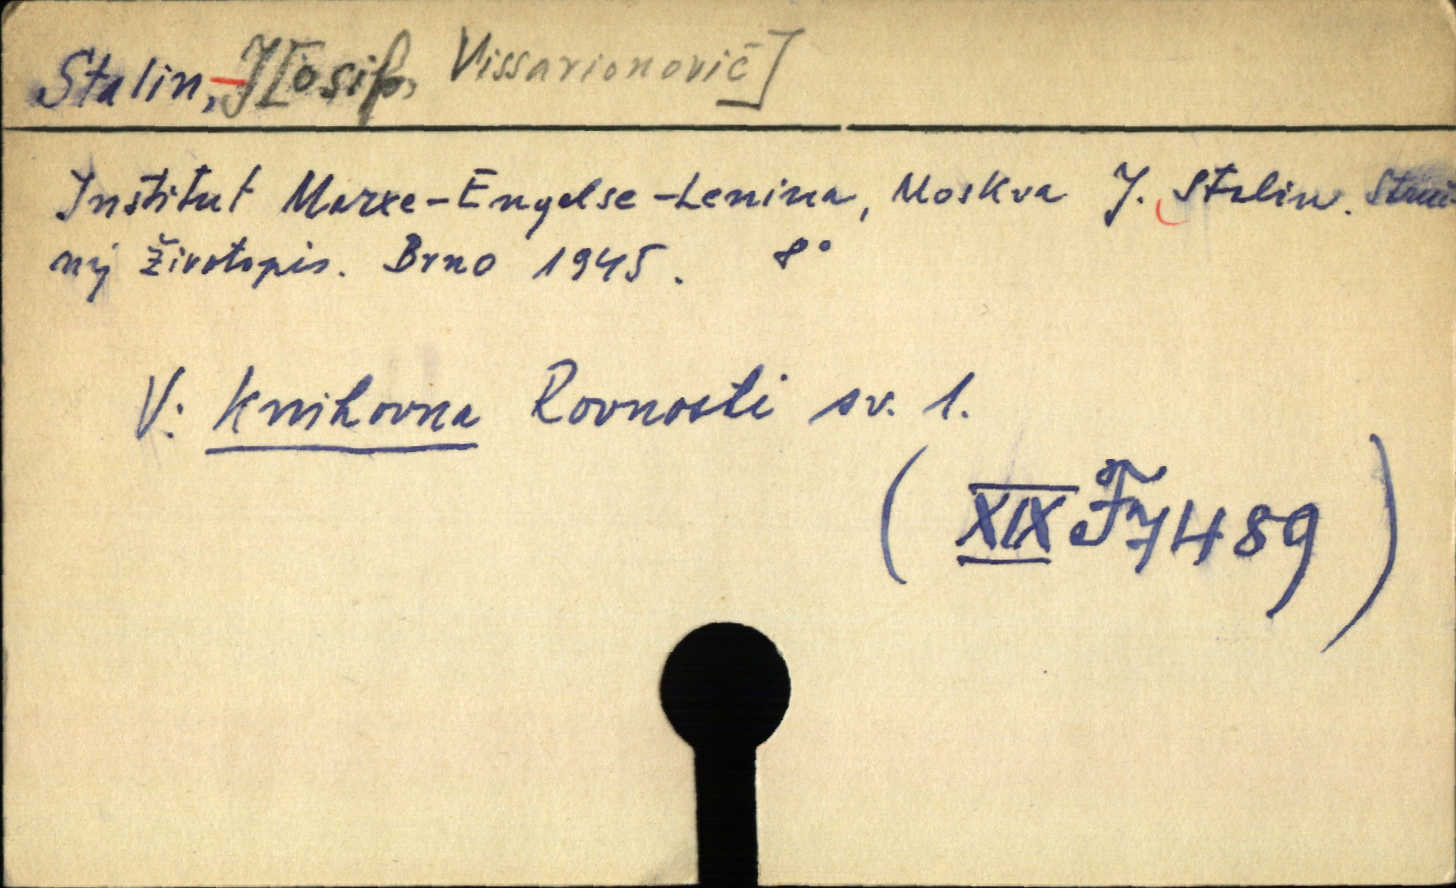 Stalin, J[osif Vissarionovič]
Institut Marxe-Engelse-Lenina, Moskva J. Stalin. Struč-
ný životopis. Brno 1945. 8°
V: Knihovna Rovnosti sv. 1.
( XIX F 7489 )